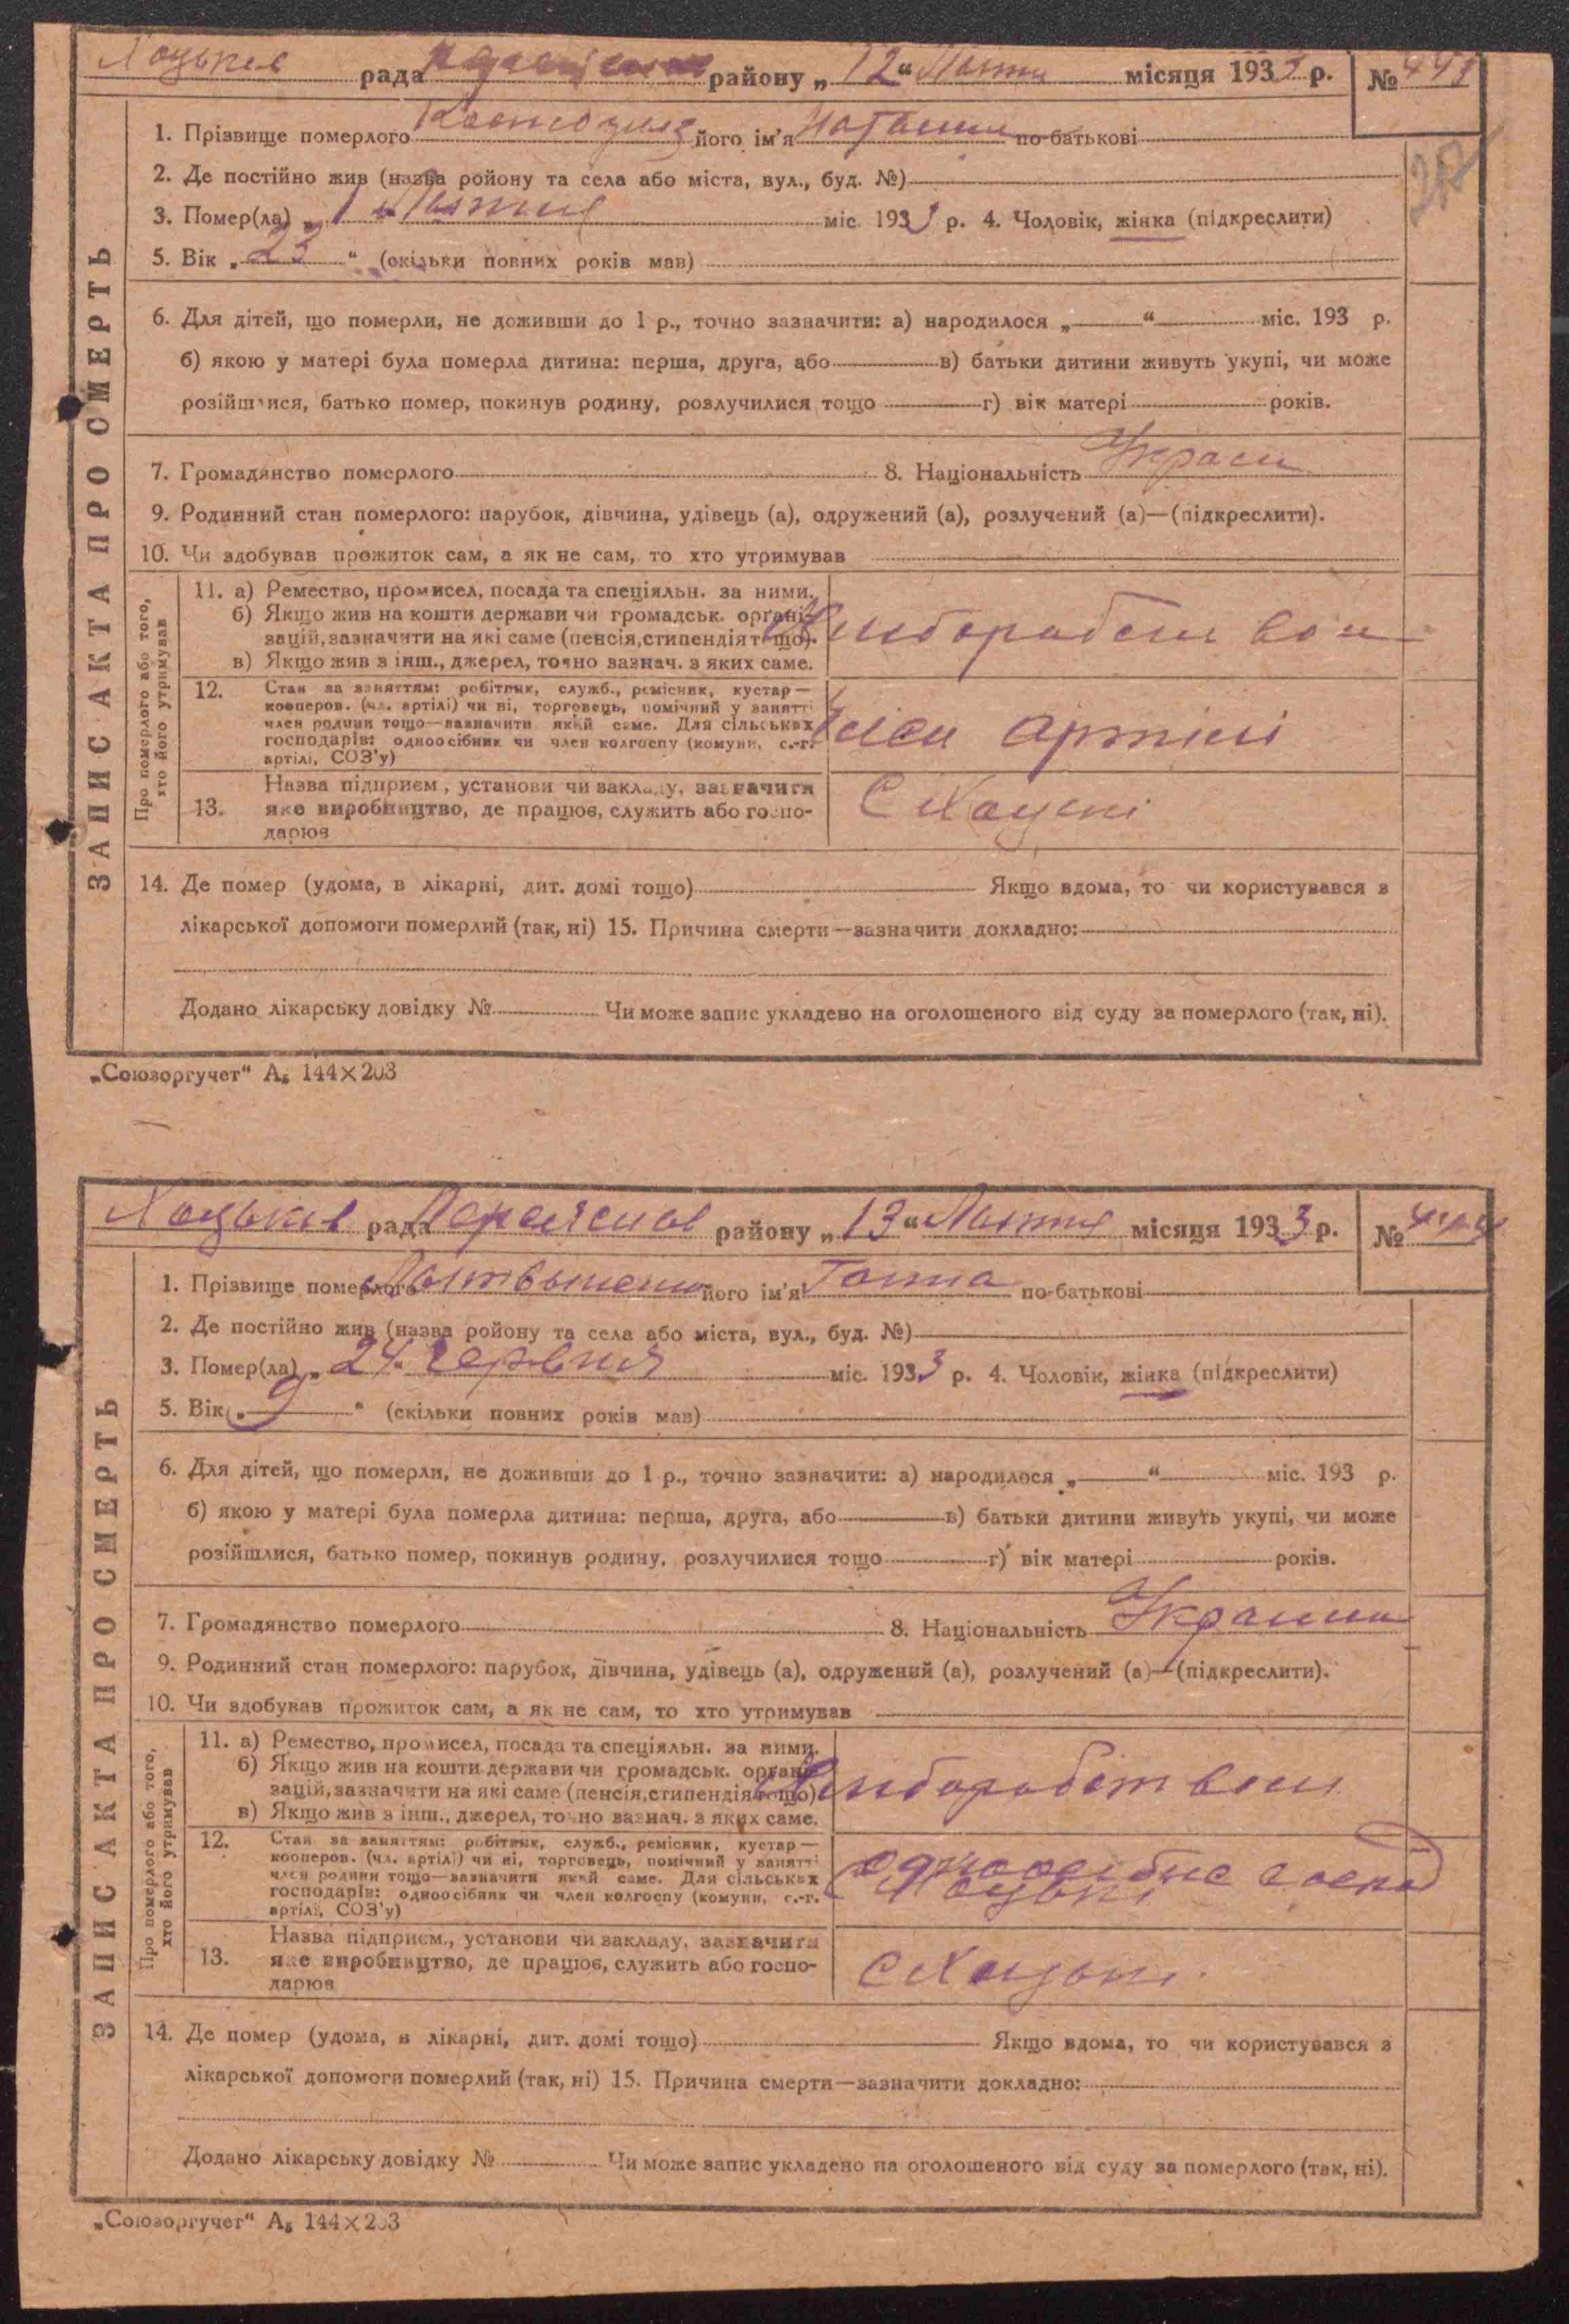 Хоцьків рада району „12“ місяця 1933 р. №
1. Прізвище померлого його ім'я по-батькові
2. Де постійно жив (назва ройону та села або міста, вул., буд. №)
3. Помер(ла) „1 міс. 1933 р. 4. Чоловік, жінка (підкреслити)
5. Вік „23“ (скільки повних років мав)
6. Для дітей, що померли, не доживши до 1 р., точно зазначити: а) народилося „ “ міс. 193 р.
б) якою у матері була померла дитина: перша, друга, або в) батьки дитини живуть укупі, чи може
розійшлися, батько помер, покинув родину, розлучилися тощо г) вік матері років.
7. Громадянство померлого 8. Національність Украін
9. Родинний стан померлого: парубок, дівчина, удівець (а), одружений (а), розлучений (а)—(підкреслити).
10. Чи здобував прожиток сам, а як не сам, то хто утримував
ЗАПИС АКТА ПРО СМЕРТЬ
Про померлого або того,
хто його утримував
11. а) Ремество, промисел, посада та спеціяльн. за ними.
б) Якщо жив на кошти держави чи громадськ. органі-
зацій, зазначити на які саме (пенсія, стипендія тощо).
в) Якщо жив з інш., джерел, точно зазнач. з яких саме.
12. Стан за заняттям: робітник, служб., ремісник, кустар—
кооперов. (чл. артілі) чи ні, торговець, помічний у занятті
член родини тощо—зазначити який саме. Для сільських
господарів: одноосібник чи член колгоспу (комуни, с.-г.
артілі, СОЗ'у)
член артілі
13. Назва підприєм., установи чи закладу, зазначити
яке виробництво, де працює, служить або госпо-
дарює
С Хоцькі
14. Де помер (удома, в лікарні, дит. домі тощо) Якщо вдома, то чи користувався з
лікарської допомоги померлий (так, ні) 15. Причина смерти—зазначити докладно:
Додано лікарську довідку № Чи може запис укладено на оголошеного від суду за померлого (так, ні).
„Союзоргучет“ А₅ 144×203
Хоцьків рада Переяслав району „13“ місяця 1933 р. №
1. Прізвище померлого його ім'я Ганна по-батькові
2. Де постійно жив (назва ройону та села або міста, вул., буд. №)
3. Помер(ла) „24 червня міс. 1933 р. 4. Чоловік, жінка (підкреслити)
5. Вік „9“ (скільки повних років мав)
6. Для дітей, що померли, не доживши до 1 р., точно зазначити: а) народилося „ “ міс. 193 р.
б) якою у матері була померла дитина: перша, друга, або в) батьки дитини живуть укупі, чи може
розійшлися, батько помер, покинув родину, розлучилися тощо г) вік матері років.
7. Громадянство померлого 8. Національність
9. Родинний стан померлого: парубок, дівчина, удівець (а), одружений (а), розлучений (а)—(підкреслити).
10. Чи здобував прожиток сам, а як не сам, то хто утримував
ЗАПИС АКТА ПРО СМЕРТЬ
Про померлого або того,
хто його утримував
11. а) Ремество, промисел, посада та спеціяльн. за ними.
б) Якщо жив на кошти держави чи громадськ. органі-
зацій, зазначити на які саме (пенсія, стипендія тощо)
в) Якщо жив з інш., джерел, точно зазнач. з яких саме.
12. Стан за заняттям: робітник, служб., ремісник, кустар—
кооперов. (чл. артілі) чи ні, торговець, помічний у занятті
член родини тощо—зазначити який саме. Для сільських
господарів: одноосібник чи член колгоспу (комуни, с.-г.
артілі, СОЗ'у)
13. Назва підприєм., установи чи закладу, зазначити
яке виробництво, де працює, служить або госпо-
дарює
С Хоцькі
14. Де помер (удома, в лікарні, дит. домі тощо) Якщо вдома, то чи користувався з
лікарської допомоги померлий (так, ні) 15. Причина смерти—зазначити докладно:
Додано лікарську довідку № Чи може запис укладено на оголошеного від суду за померлого (так, ні).
„Союзоргучет“ А₅ 144×203